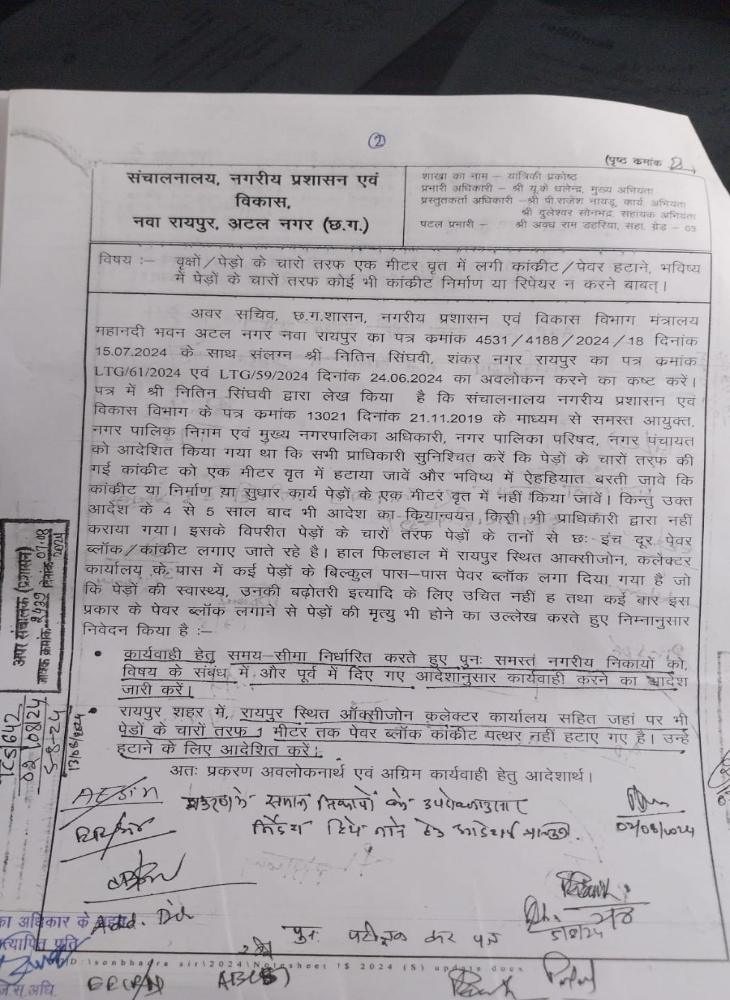 2
(पृष्ठ कमांक
संचालनालय, नगरीय प्रशासन एवं
विकास,
नवा रायपुर, अटल नगर (छ.ग.)
शाखा का नाम – यांत्रिकी प्रकोष्ठ
प्रभारी अधिकारी – श्री यू.के धलेन्द्र, मुख्य अभियंता
प्रस्तुतकर्ता अधिकारी –श्री पी.राजेश नायडू, कार्य. अभियंता
श्री दुलेश्वर सोनभद्र, सहायक अभियंता
पटल प्रभारी – श्री अवध राम डहरिया, सहा. ग्रेड – 03
विषय :– वृक्षों/पेड़ो के चारो तरफ एक मीटर वृत में लगी कांकीट/पेवर हटाने, भविष्य
में पेड़ों के चारों तरफ कोई भी कांकीट निर्माण या रिपेयर न करने बाबत्।
अवर सचिव, छ.ग.शासन, नगरीय प्रशासन एवं विकास विभाग मंत्रालय
महानदी भवन अटल नगर नवा रायपुर का पत्र कमांक 4531/4188/2024/18 दिनांक
15.07.2024 के साथ संलग्न श्री नितिन सिंघवी, शंकर नगर रायपुर का पत्र कमांक
LTG/61/2024 एवं LTG/59/2024 दिनांक 24.06.2024 का अवलोकन करने का कष्ट करें।
पत्र में श्री नितिन सिंघवी द्वारा लेख किया है कि संचालनालय नगरीय प्रशासन एवं
विकास विभाग के पत्र कमांक 13021 दिनांक 21.11.2019 के माध्यम से समस्त आयुक्त,
नगर पालिक निगम एवं मुख्य नगरपालिका अधिकारी, नगर पालिका परिषद, नगर पंचायत
को आदेशित किया गया था कि सभी प्राधिकारी सुनिश्चित करें कि पेड़ों के चारों तरफ की
गई कांकीट को एक मीटर वृत में हटाया जावें और भविष्य में ऐहहियात बरती जावे कि
कांकीट या निर्माण या सुधार कार्य पेड़ों के एक मीटर वृत में नहीं किया जावें। किन्तु उक्त
आदेश के 4 से 5 साल बाद भी आदेश का कियान्वयन किसी भी प्राधिकारी द्वारा नहीं
कराया गया। इसके विपरीत पेड़ों के चारों तरफ पेड़ों के तनों से छः इंच दूर पेवर
ब्लॉक/कांकीट लगाए जाते रहे है। हाल फिलहाल में रायपुर स्थित आक्सीजोन, कलेक्टर
कार्यालय के पास में कई पेड़ों के बिल्कुल पास–पास पेवर ब्लॉक लगा दिया गया है जो
कि पेड़ों की स्वास्थ्य, उनकी बढ़ोतरी इत्यादि के लिए उचित नहीं ह तथा कई बार इस
प्रकार के पेवर ब्लॉक लगाने से पेड़ों की मृत्यु भी होने का उल्लेख करते हुए निम्नानुसार
निवेदन किया है :–
• कार्यवाही हेतु समय–सीमा निर्धारित करते हुए पुनः समस्त नगरीय निकायों को,
विषय के संबंध में और पूर्व में दिए गए आदेशानुसार कार्यवाही करने का आदेश
जारी करें।
• रायपुर शहर में, रायपुर स्थित ऑक्सीजोन कलेक्टर कार्यालय सहित जहां पर भी
पेड़ों के चारों तरफ 1 मीटर तक पेवर ब्लॉक कांकीट पत्थर नहीं हटाए गए है। उन्हें
हटाने के लिए आदेशित करें।
अतः प्रकरण अवलोकनार्थ एवं अग्रिम कार्यवाही हेतु आदेशार्थ।
अपर संचालक (प्रशासन)
02/08/24
5-8-24
13/08/2024
02/08/2024
5/8/24
का अधिकार के
सत्यापित प्रति